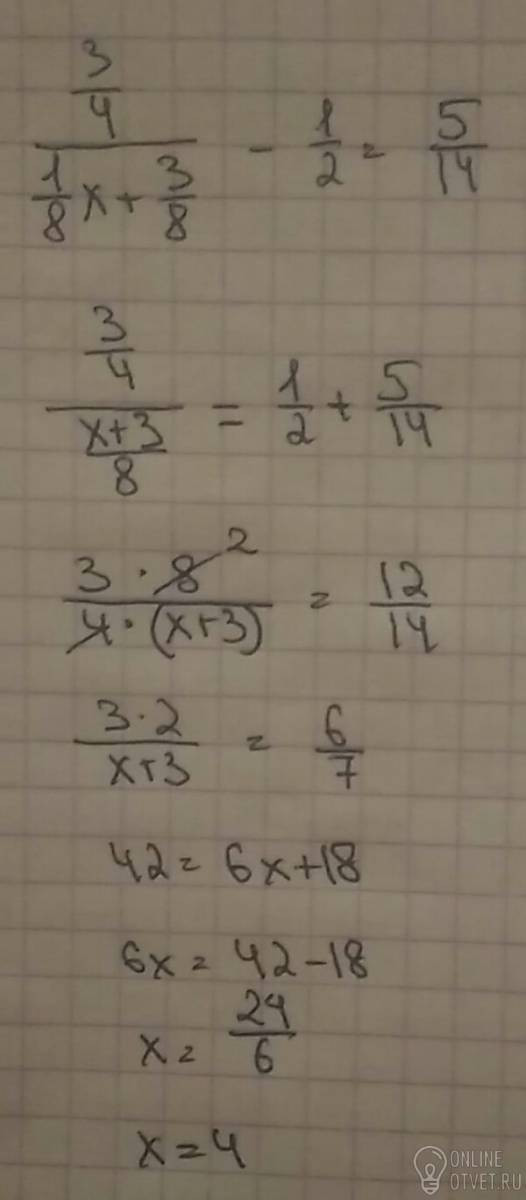 (3/4)/(1/8 x + 3/8) - 1/2 = 5/14
(3/4)/((x+3)/8) = 1/2 + 5/14
(3 · 8 2)/(4 · (x+3)) = 12/14
(3·2)/(x+3) = 6/7
42 = 6x+18
6x = 42-18
x = 24/6
x = 4
ONLINE
OTVET.RU